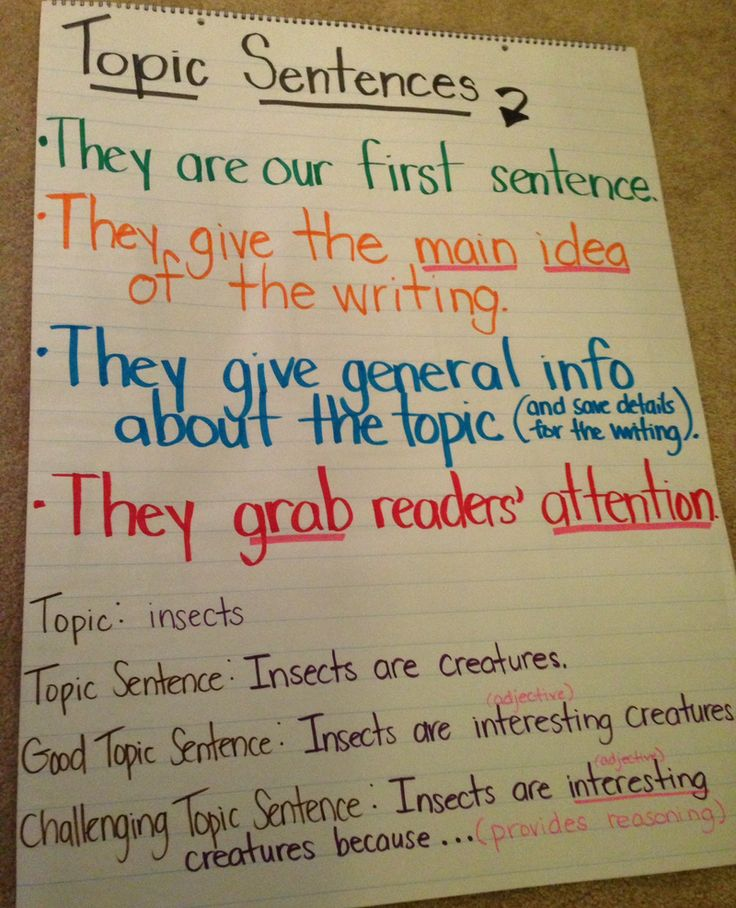 Topic Sentences
• They are our first sentence.
• They give the main idea
of the writing.
• They give general info
about the topic (and save details
for the writing).
• They grab readers' attention.
Topic: insects
Topic Sentence: Insects are creatures.
(adjective)
Good Topic Sentence: Insects are interesting creatures
(adjective)
Challenging Topic Sentence: Insects are interesting
creatures because... (provides reasoning)